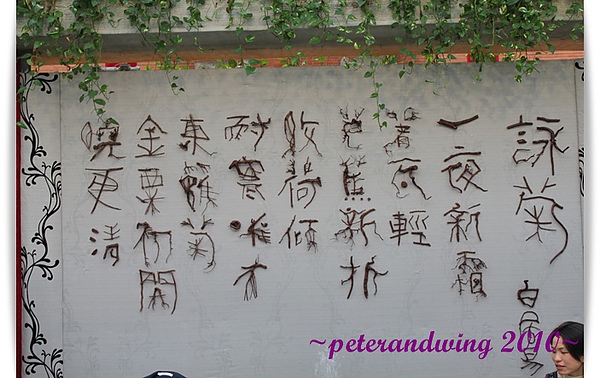 詠菊
白居易
一夜新霜
著瓦輕
芭蕉新折
敗荷傾
耐寒唯有
東籬菊
金粟初開
曉更清
~peterandwing 2010~